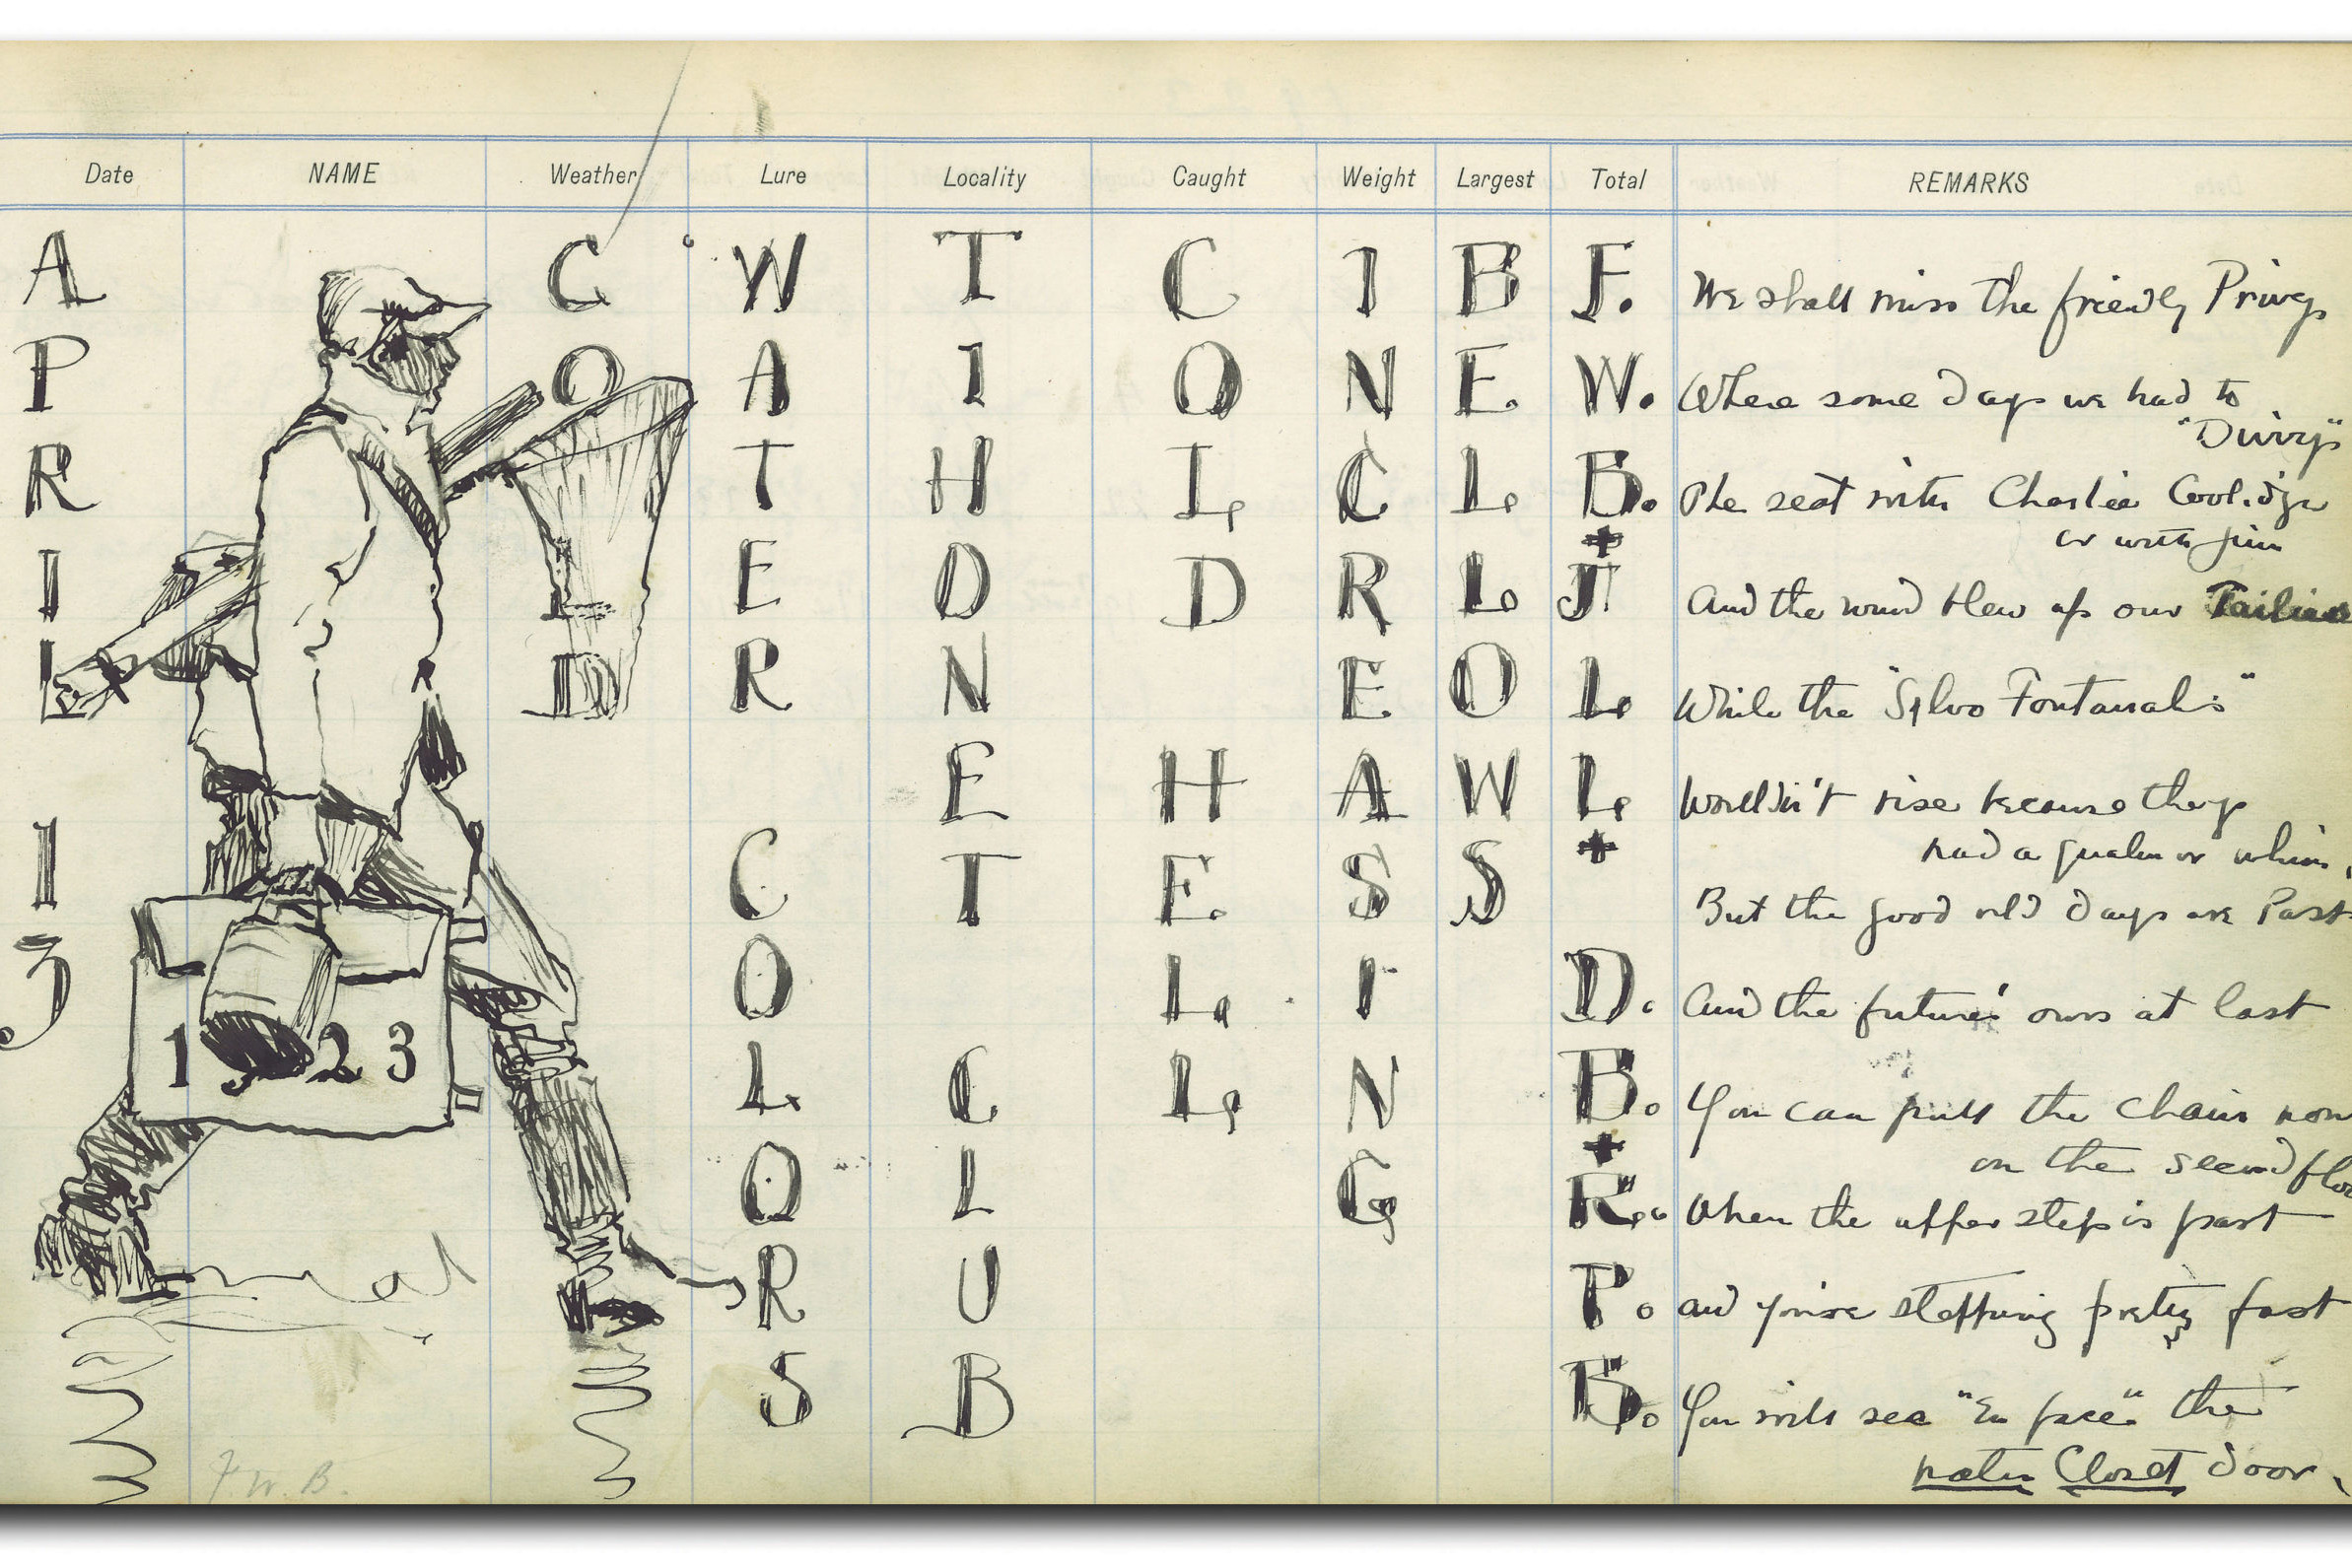 Date NAME Weather Lure Locality Caught Weight Largest Total REMARKS
APRIL 13
1923
COLD
WATER COLORS
TIHONET CLUB
COLD HELL
INCREASING
BELLOWS
F. W. B. + J L. L. + D. B. + R. P. B.
We shall miss the friendly Privy
Where some days we had to
"Divvy"
The seat with Charlie Coolidge
or with Jim
And the wind blew up our
While the "Sylvo Fontanalis"
Wouldn't rise because they
had a qualm or whim,
But the good old days are Past
And the future's ours at last
You can pull the chain now
on the second
When the upper step is past
and you're stepping pretty fast
You will see "En face" the
water Closet door,
F. W. B.